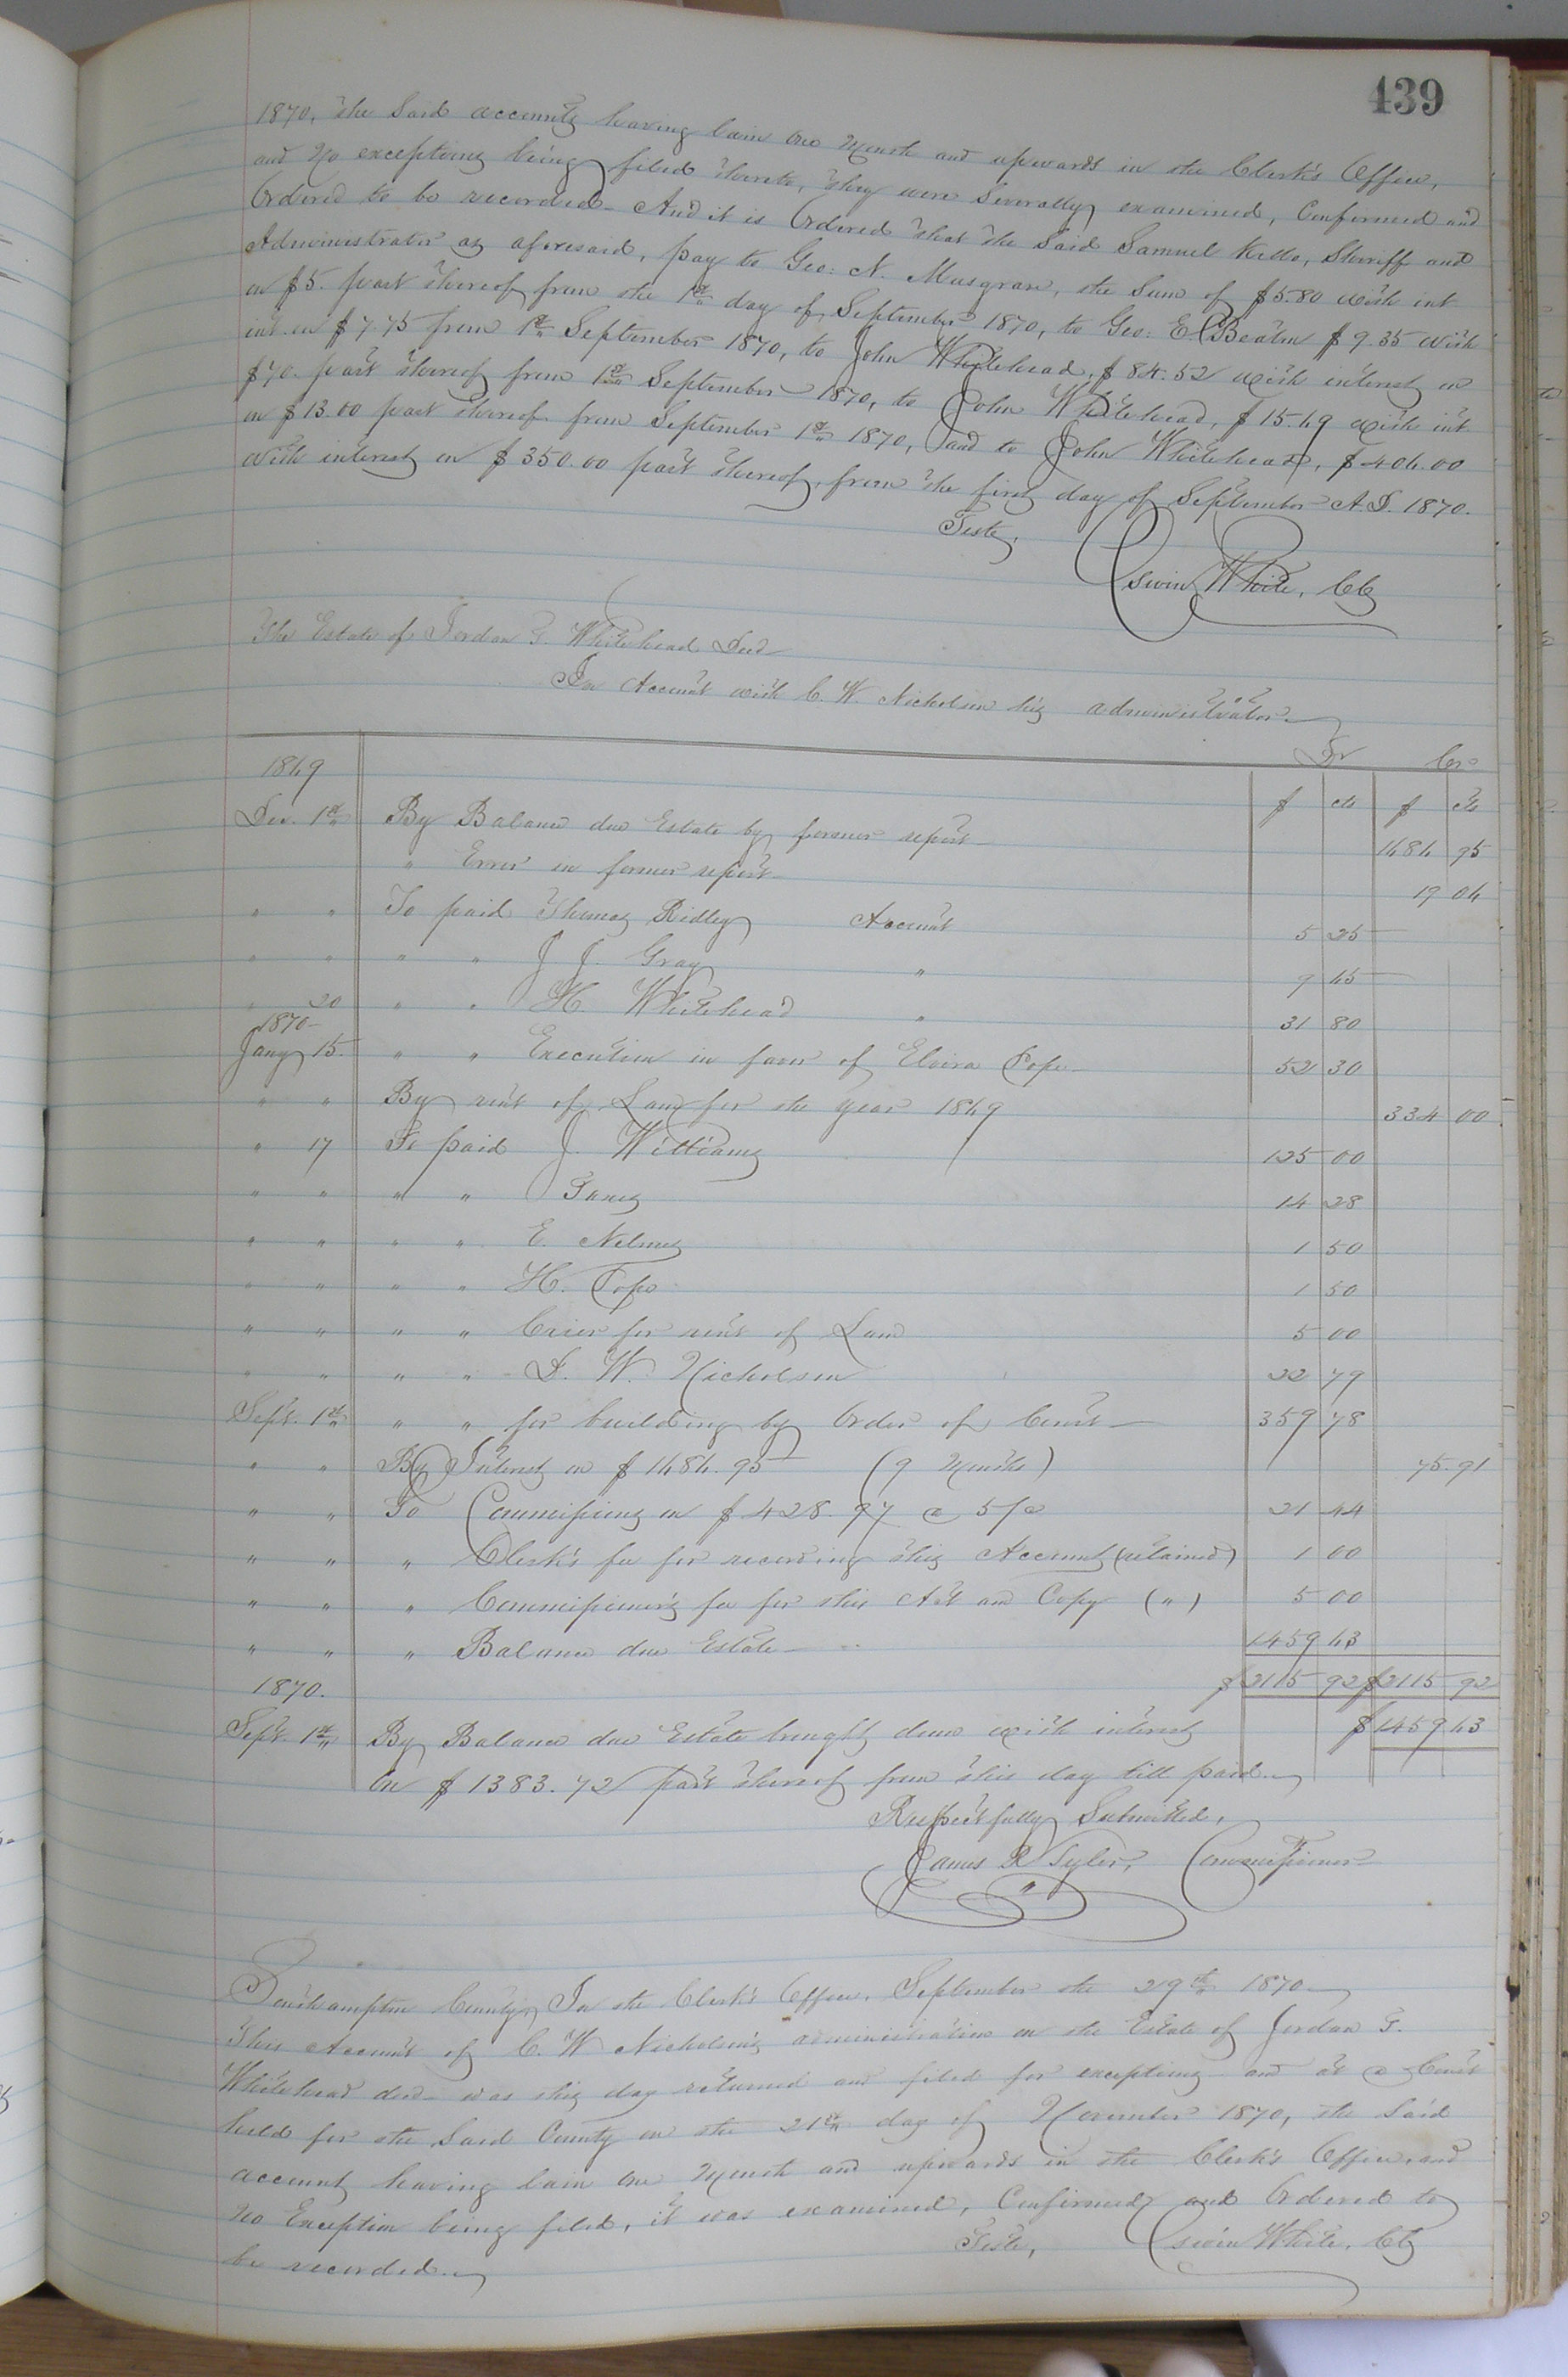 439
1870, the said accounts having lain one Month and upwards in the Clerk's Office,
and no exceptions being filed thereto, they were Severally examined, Confirmed and
Ordered to be recorded - And it is Ordered that the Said Samuel Kello, Sheriff and
Administrator as aforesaid, pay to Geo: N. Musgrave, the Sum of $5.80 with int
on $5. part thereof from the 1st day of September 1870, to Geo: E. Beaton $9.35 with
int. on $7.75 from 1st September 1870, to John Whitehead, $84.52 with interest on
$70. part thereof from 1st September 1870, to John Whitehead, $15.69 with int
on $13.00 part thereof from September 1st 1870, and to John Whitehead, $406.00
With interest on $350.00 part thereof, from the first day of September A.D. 1870.
Teste,
Edwin White, Clk
The Estate of Jordan T. Whitehead Decd
In Account with C. W. Nicholson his administrator
Dr Cr
1869 $ cts $ cts
Dec. 1st By Balance due Estate by former report 1686 95
" Error in former report 19 06
" " To paid Thomas Ridley Account 5 25
" " " " J J. Gray " 9 65
" 20 " " H. Whitehead " 31 80
1870
Jany 15. " " Execution in favor of Elvira Pope 52 30
" " By rent of Land for the year 1869 334 00
" 17 To paid J. Williams 125 00
" " " " Taxes 14 28
" " " " E. Nelms 1 50
" " " " H. Pope 1 50
" " " " Crier for rent of Land 5 00
" " " " D. W. Nicholson 22 79
Sept. 1st " " for building by Order of Court 359 78
" " By Interest on $1686.95 (9 Months) 75.91
" " To Commissions on $428.97 @ 5/o 21 44
" " " Clerk's fee for recording this Account (retained) 1 00
" " " Commissioner's fee for this Act and Copy (") 5 00
" " " Balance due Estate 1459 63
1870. $2115 92 $2115 92
Sept. 1st By Balance due Estate brought down with interest $1459 63
On $1383.72 part thereof from this day till paid.
Respectfully Submitted,
James R Tyler, Commissioner
Southampton County, In the Clerk's Office, September the 29th 1870
This Account of C. W Nicholson's administration on the Estate of Jordan T.
Whitehead decd was this day returned and filed for exceptions and at a Court
held for the Said County on the 21st day of November 1870, the Said
account having lain one Month and upwards in the Clerk's Office, and
No Exception being filed, it was examined, Confirmed and Ordered to
be recorded.
Teste, Edwin White, Clk